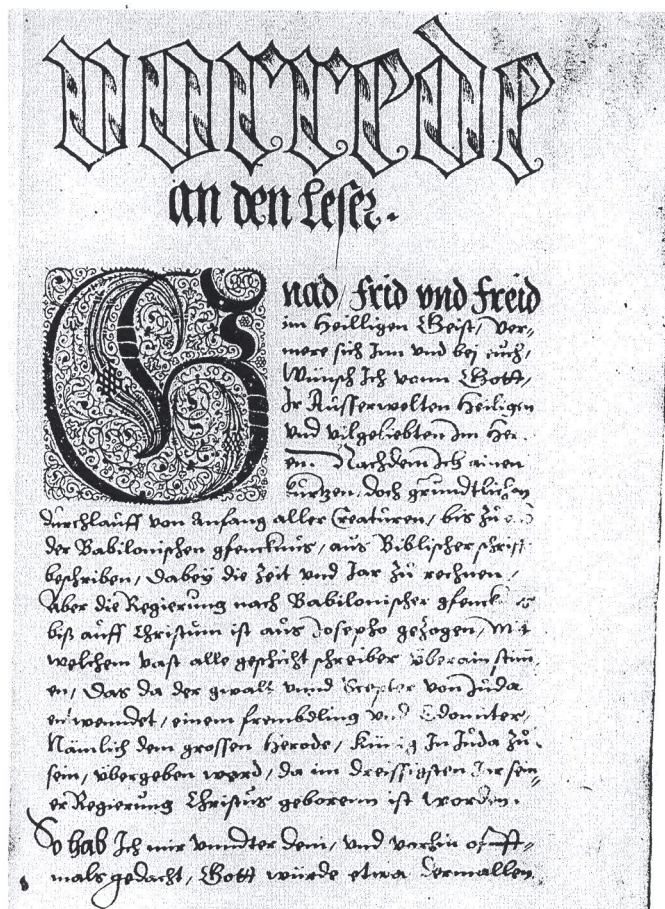 Vorrede
an den Leser.
Gnad / frid vnd freid
im Heilligen Geist / ver=
mere sich Inn vnd bej euch /
Wünsch Ich vonn Gott /
Ir Ausserwelten Heiligen
vnd vilgeliebten Im Her.
en. Nachdem Ich ainen
kurtzen, doch grundtlichen
durchlauff von Anfang aller Creaturen / bis zů
der Babilonischen gfencknus / aus Biblischer schrift
beschriben / Dabeÿ die Zeit vnd Jar zů rechnen /
Aber die Regierung nach Babilonischer gfenck
biß auff Christum ist aus Josepho gezogen / Mit
welchem vast alle geschicht schreiber überainstim,
en / Das da der gwalt vnnd Scepter von Juda
entwendet / einem frembdling vnd Edomiter /
Nämlich dem grossen Herode / Künig In Juda zů
sein / übergeben ward / da im dreissigsten Jar sein=
er Regierung Christus geborenn ist worden.
So hab Ich mir vnndter dem / vnd vorhin offt=
mals gedacht / Gott würde etwa dermallen